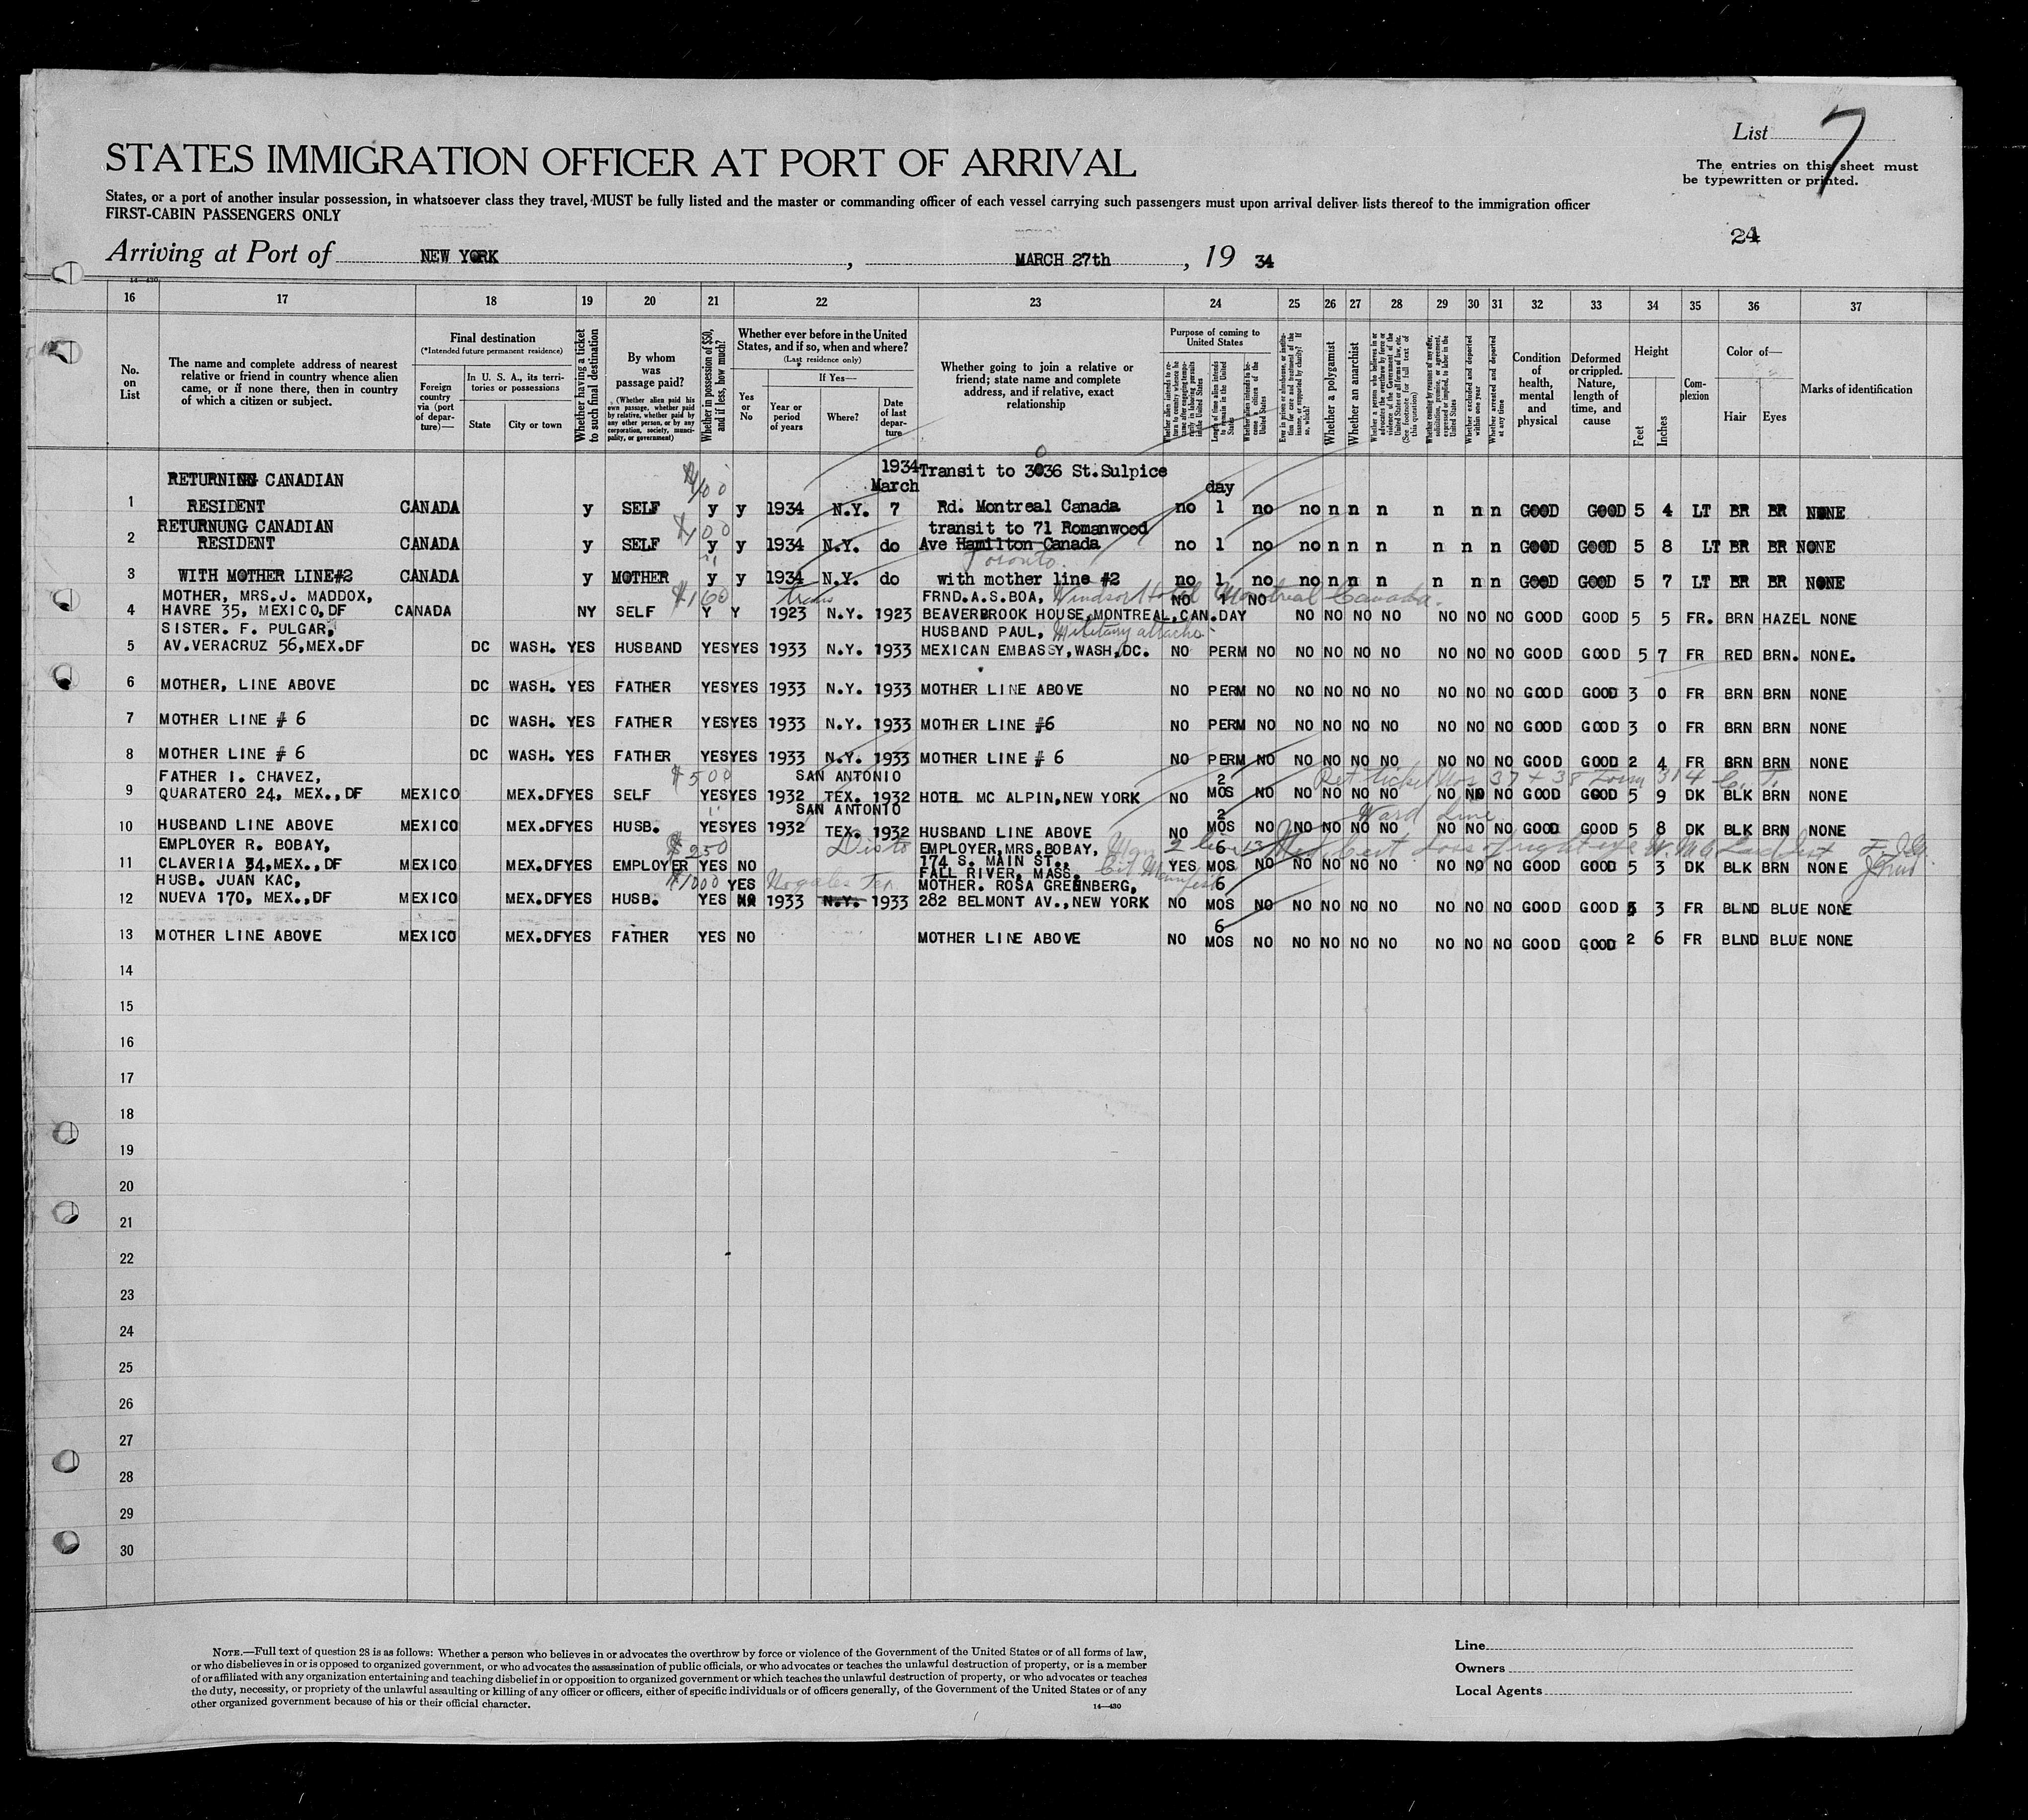 List 7
STATES IMMIGRATION OFFICER AT PORT OF ARRIVAL
The entries on this sheet must
be typewritten or printed.
States, or a port of another insular possession, in whatsoever class they travel, MUST be fully listed and the master or commanding officer of each vessel carrying such passengers must upon arrival deliver lists thereof to the immigration officer
FIRST-CABIN PASSENGERS ONLY
24
Arriving at Port of NEW YORK, MARCH 27th, 19 34
14—430
16 17 18 19 20 21 22 23 24 25 26 27 28 29 30 31 32 33 34 35 36 37
No. on List
The name and complete address of nearest relative or friend in country whence alien came, or if none there, then in country of which a citizen or subject.
Final destination
(*Intended future permanent residence)
Foreign country via (port of departure)—
In U. S. A., its territories or possessions
State
City or town
Whether having a ticket to such final destination
By whom was passage paid?
(Whether alien paid his own passage, whether paid by relative, whether paid by any other person, or by any corporation, society, municipality, or government)
Whether in possession of $50, and if less, how much?
Whether ever before in the United States, and if so, when and where?
(Last residence only)
Yes or No
If Yes—
Year or period of years
Where?
Date of last departure
Whether going to join a relative or friend; state name and complete address, and if relative, exact relationship
Purpose of coming to United States
Whether alien intends to return to country whence he came after engaging temporarily in laboring pursuits in the United States
Length of time alien intends to remain in the United States
Whether alien intends to become a citizen of the United States
Whether a polygamist
Whether an anarchist
Whether excluded and deported within one year
Whether arrested and deported at any time
Condition of health, mental and physical
Deformed or crippled. Nature, length of time, and cause
Height
Feet
Inches
Complexion
Color of—
Hair
Eyes
Marks of identification
RETURNING CANADIAN $100 1934 Transit to 3036 St.Sulpice
March day
1 RESIDENT CANADA y SELF y y 1934 N.Y. 7 Rd. Montreal Canada no 1 no no n n n n n n GOOD GOOD 5 4 LT BR BR NONE
RETURNUNG CANADIAN $100 transit to 71 Romanwood
2 RESIDENT CANADA y SELF y y 1934 N.Y. do Ave Hamilton Canada no 1 no no n n n n n n GOOD GOOD 5 8 LT BR BR NONE
Toronto
3 WITH MOTHER LINE#2 CANADA y MOTHER y y 1934 N.Y. do with mother line #2 no 1 no no n n n n n n GOOD GOOD 5 7 LT BR BR NONE
MOTHER, MRS.J. MADDOX, $160 trans FRND.A.S.BOA, Windsor Hotel Montreal Canada.
4 HAVRE 35, MEXICO,DF CANADA NY SELF Y Y 1923 N.Y. 1923 BEAVERBROOK HOUSE,MONTREAL,CAN. NO 1 DAY NO NO NO NO NO NO NO NO GOOD GOOD 5 5 FR. BRN HAZEL NONE
SISTER. F. PULGAR, HUSBAND PAUL, Military attache
5 AV.VERACRUZ 56,MEX.DF DC WASH. YES HUSBAND YES YES 1933 N.Y. 1933 MEXICAN EMBASSY,WASH,DC. NO PERM NO NO NO NO NO NO NO NO GOOD GOOD 5 7 FR RED BRN. NONE.
6 MOTHER, LINE ABOVE DC WASH. YES FATHER YES YES 1933 N.Y. 1933 MOTHER LINE ABOVE NO PERM NO NO NO NO NO NO NO NO GOOD GOOD 3 0 FR BRN BRN NONE
7 MOTHER LINE # 6 DC WASH. YES FATHER YES YES 1933 N.Y. 1933 MOTHER LINE #6 NO PERM NO NO NO NO NO NO NO NO GOOD GOOD 3 0 FR BRN BRN NONE
8 MOTHER LINE # 6 DC WASH. YES FATHER YES YES 1933 N.Y. 1933 MOTHER LINE # 6 NO PERM NO NO NO NO NO NO NO NO GOOD GOOD 2 4 FR BRN BRN NONE
FATHER I. CHAVEZ, $500 SAN ANTONIO Ret ticket Nos 37 + 38 Form 314
9 QUARATERO 24, MEX.,DF MEXICO MEX.DF YES SELF YES YES 1932 TEX. 1932 HOTEL MC ALPIN,NEW YORK NO 2 MOS NO NO NO NO NO NO NO NO GOOD GOOD 5 9 DK BLK BRN NONE
SAN ANTONIO Ward Line
10 HUSBAND LINE ABOVE MEXICO MEX.DF YES HUSB. YES YES 1932 TEX. 1932 HUSBAND LINE ABOVE NO 2 MOS NO NO NO NO NO NO NO NO GOOD GOOD 5 8 DK BLK BRN NONE
EMPLOYER R. BOBAY, $250 EMPLOYER,MRS.BOBAY, Med cert loss of right eye
11 CLAVERIA 34,MEX.,DF MEXICO MEX.DF YES EMPLOYER YES NO 174 S. MAIN ST., FALL RIVER, MASS. YES 6 MOS NO NO NO NO NO NO NO NO GOOD GOOD 5 3 DK BLK BRN NONE
HUSB. JUAN KAC, $1000 YES Nogales MOTHER. ROSA GREENBERG,
12 NUEVA 170, MEX.,DF MEXICO MEX.DF YES HUSB. YES 1933 N.Y. 1933 282 BELMONT AV.,NEW YORK NO 6 MOS NO NO NO NO NO NO NO NO GOOD GOOD 5 3 FR BLND BLUE NONE
13 MOTHER LINE ABOVE MEXICO MEX.DF YES FATHER YES NO MOTHER LINE ABOVE NO 6 MOS NO NO NO NO NO NO NO NO GOOD GOOD 2 6 FR BLND BLUE NONE
14
15
16
17
18
19
20
21
22
23
24
25
26
27
28
29
30
NOTE.—Full text of question 28 is as follows: Whether a person who believes in or advocates the overthrow by force or violence of the Government of the United States or of all forms of law,
or who disbelieves in or is opposed to organized government, or who advocates the assassination of public officials, or who advocates or teaches the unlawful destruction of property, or is a member
of or affiliated with any organization entertaining and teaching disbelief in or opposition to organized government or which teaches the unlawful destruction of property, or who advocates or teaches
the duty, necessity, or propriety of the unlawful assaulting or killing of any officer or officers, either of specific individuals or of officers generally, of the Government of the United States or of any
other organized government because of his or their official character.
14—430
Line
Owners
Local Agents